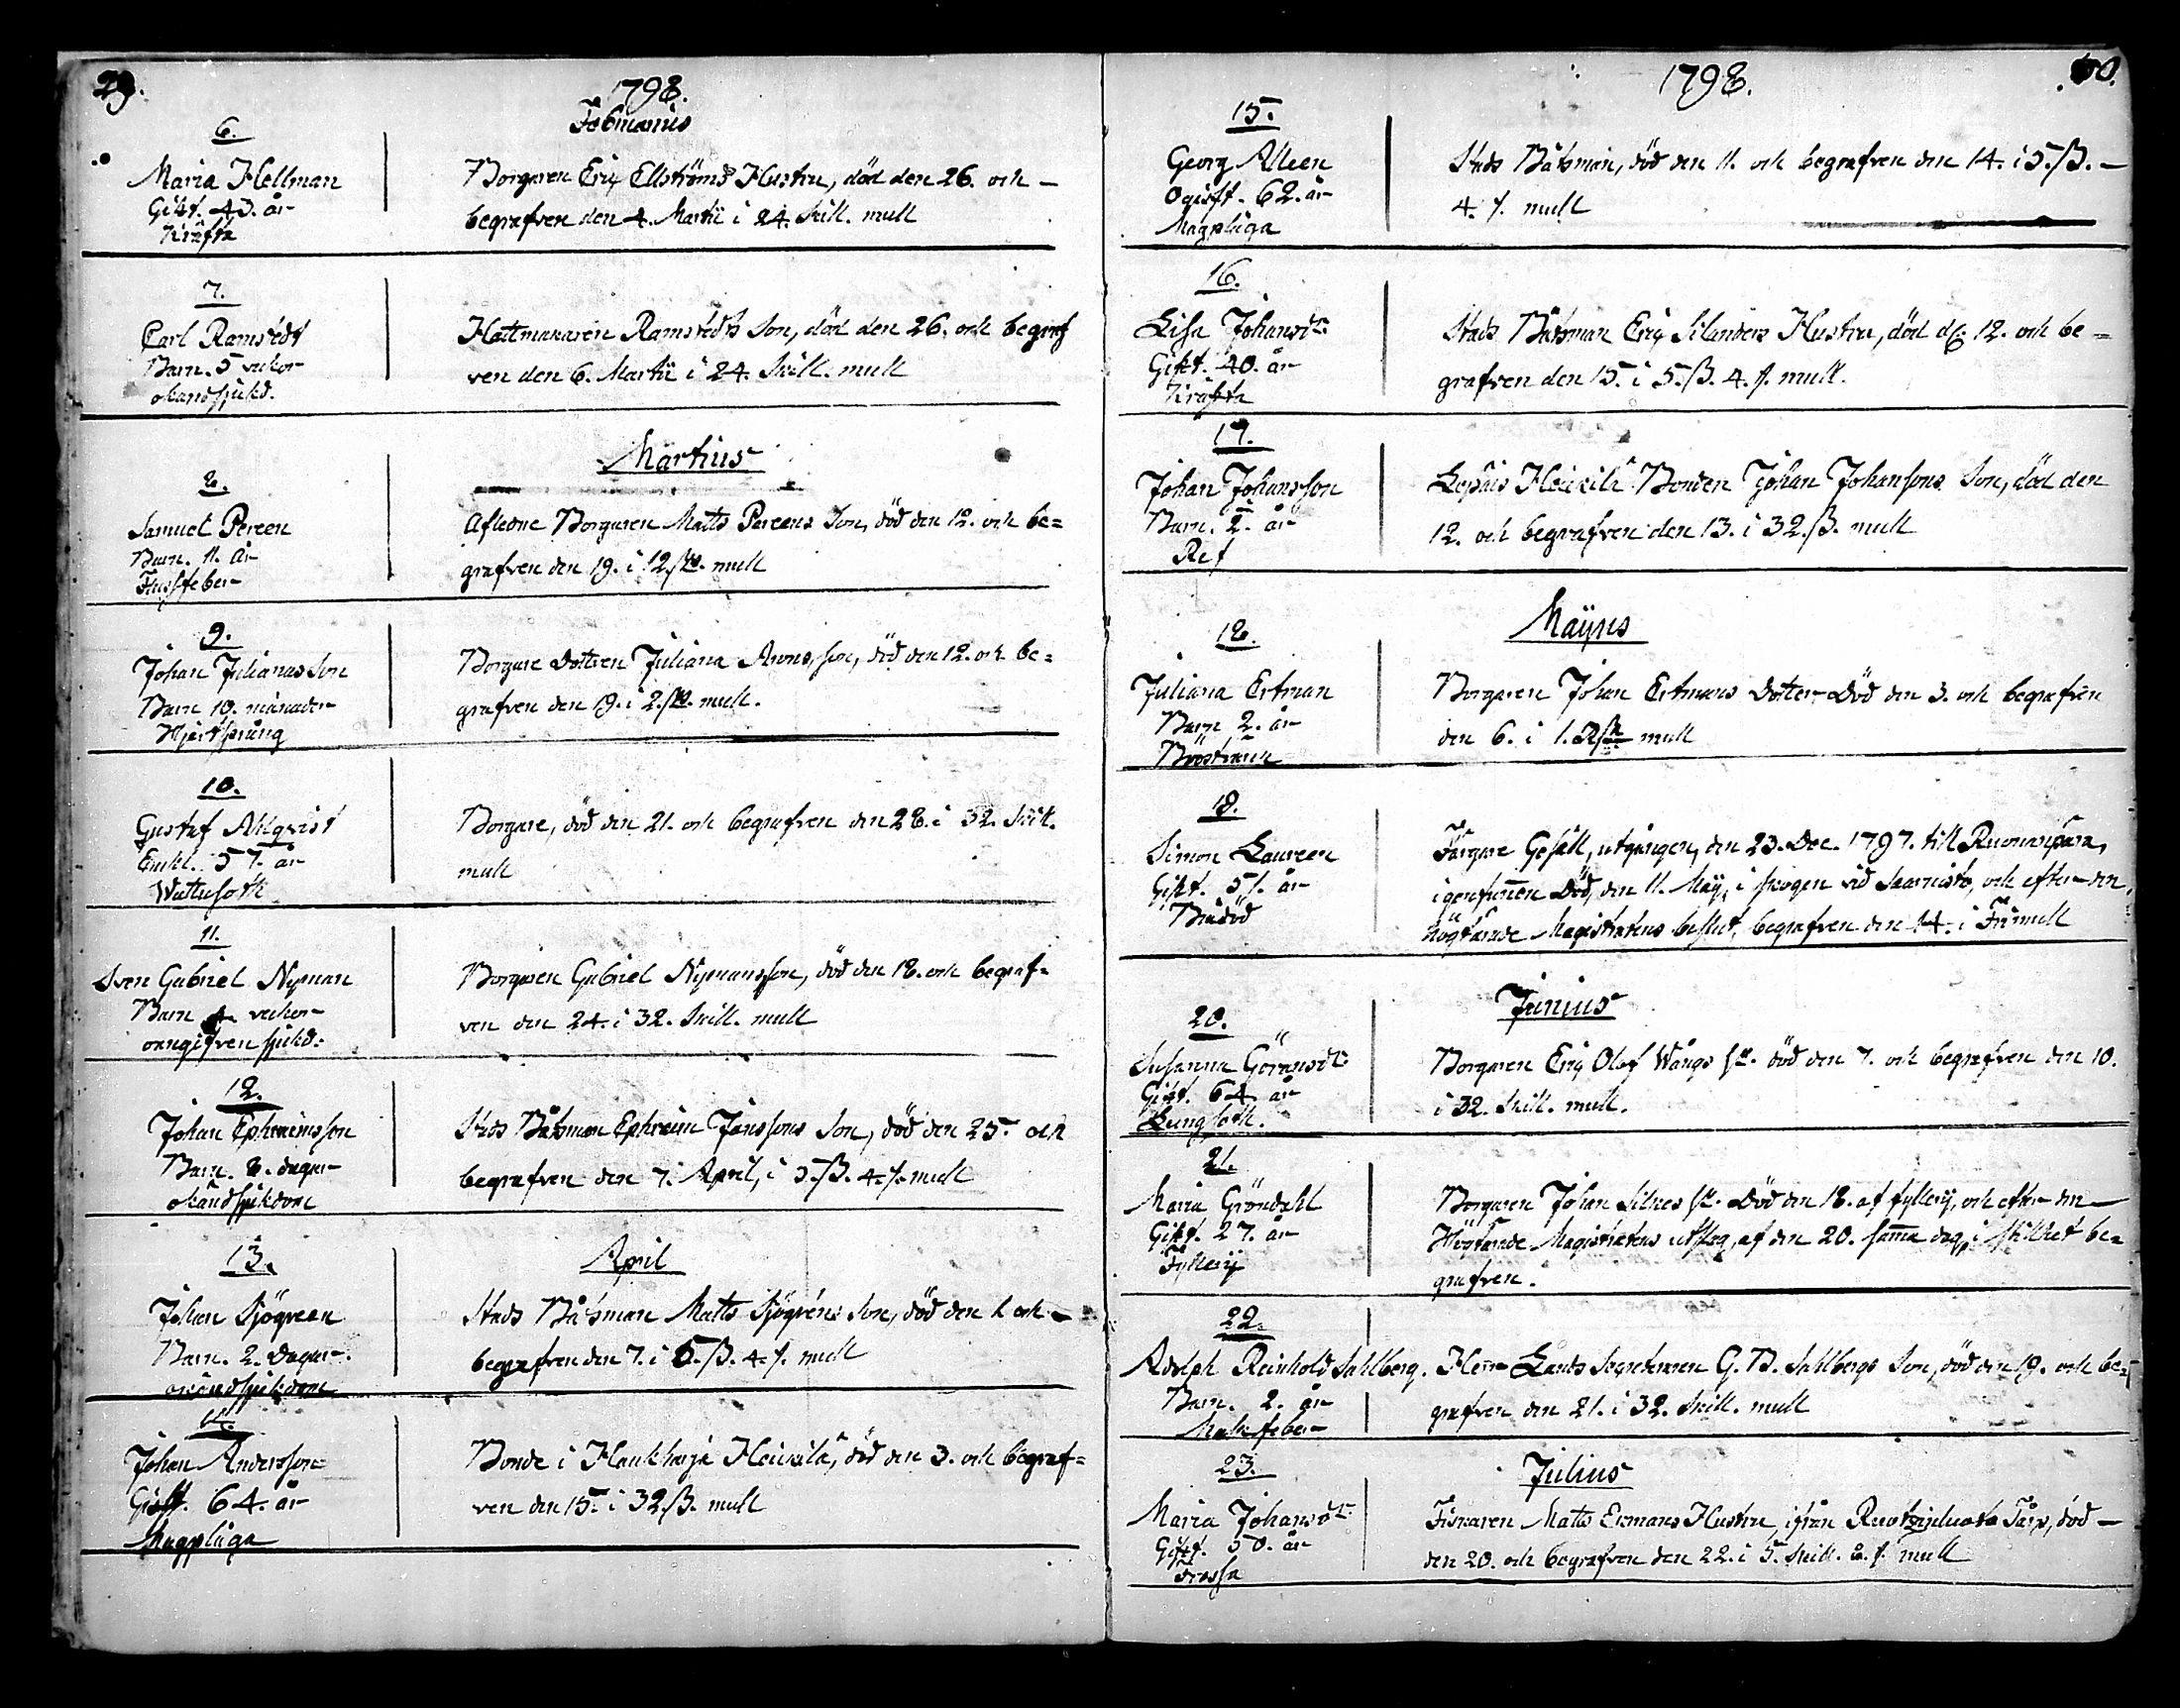 29.
1798.
Februarius
6.
Maria Hellman
Gift. 43. år
Kräfta
Borgaren Eriç Ellströms Hustru, död den 26. och
begrafven den 4. Martii i 24. Skill. mull
7.
Carl Ramstedt
Barn. 5 veckor
okändsjukd.
Hattmakaren Ramstedts Son, död den 26. och begraf
ven den 6. Martii i 24. Skill. mull
Martius
8.
Samuel Pereen
Barn. 11. år
Afledne Borgaren Matts Pereens Son, död den 12. och be=
grafven den 19. i 12 mull
9.
Johan Julianas Son
Barn 10. månader
Hjertsprång
Borgare Dottren Juliana son, död den 12. och be=
grafven den 19. i 2. mull.
10.
Gustaf Ahlqvist
Enkl. 57. år
Wattusoth
Borgare, död den 21. och begrafven den 28. i 32. Skill.
mull
11.
Sven Gabriel Nyman
Barn 4 veckor
oangifven sjukd.
Borgaren Gabriel Nymansson, död den 18. och begraf=
ven den 24. i 32. Skill. mull
12.
Johan Ephraimsson
Barn. 8. dagar
okändsjukdom
Stads Båtsman Ephraim Janssons Son, död den 25. och
begrafven den 7. April, i 5. ß. 4. /. mull
13.
April
Johan Sjögreen
Barn. 2. Dagar.
okändsjukdom
Stads Båtsman Matts Sjögréns Son, död den 1. och
begrafven den 7. i 5. ß. 4. /. mull
14.
Johan Andersson
Gift. 64. år
Magplåga
Bonde i Haukkarja Heickilä, död den 3. och begraf=
ven den 15. i 32 ß. mull
1798.
15.
Georg Alleen
Ogift. 62. år
Magplåga
Stads Båtsman, död den 11. och begrafven den 14. i 5. ß.
4. /. mull
16.
Lisa Johansdr
Gift. 40. år
Kräfta
Stads Båtsman Eriç Silanders Hustru, död d. 12. och be=
grafven den 15. i 5. ß. 4. /. mull.
17.
Johan Johansson
Barn. 2. år
Ref
Heickilä Bonden Johan Johansons Son, död den
12. och begrafven den 13. i 32. ß. mull
Mayus
18.
Juliana Ertman
Barn 2. år
Borgaren Johan Ertmans Dotter Död den 3. och begrafven
den 6. i 1. mull
19.
Simon Laureen
Gift. 51. år
Brådöd
Färgare Gesäll, utgången, den 23. Dec. 1797. till
igenfunnen Död, den 11. May, i skogen vid Saaristo, och efter den
Högtärade Magistratens beslut, begrafven den 14. i Frimull
Junius
20.
Susanna Göransdr
Gift. 64 år
Lungsoth.
Borgaren Eriç Olof Wångs hu. död den 7. och begrafven den 10.
i 32. Skill. mull.
21.
Maria Gröndahl
Gift. 27. år
Fylleri
Borgaren Johan hu. Död den 18. af fylleri, och efter den
Högtärade Magistratens utslag, af den 20. samma dag, i stillhet be=
grafven.
22.
Adolph Reinhold Sahlberg.
Barn. 2. år
Herr Lands Secreteraren G. B. Sahlbergs Son, död den 19. och be=
grafven den 21. i 32. Skill. mull
Julius
23.
Maria Johansdr
Gift. 50. år
Frossa
Fiskaren Matts Ekmans Hustru, ifrån Torp, död
den 20. och begrafven den 22. i 5. Skill. 8. /. mull